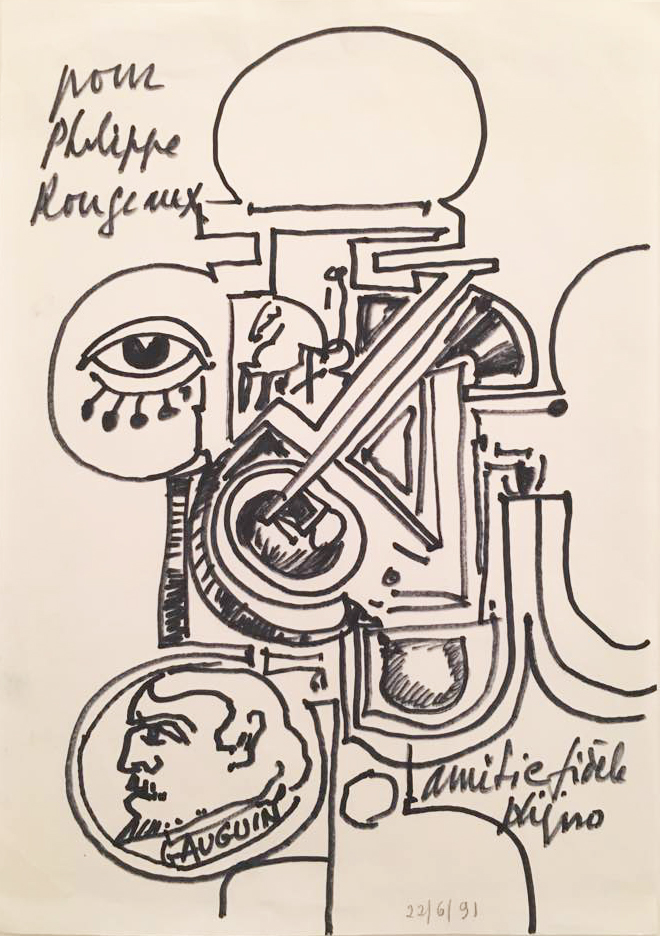 pour
Philippe
Rougeaux
GAUGUIN
amitié fidèle
22/6/91